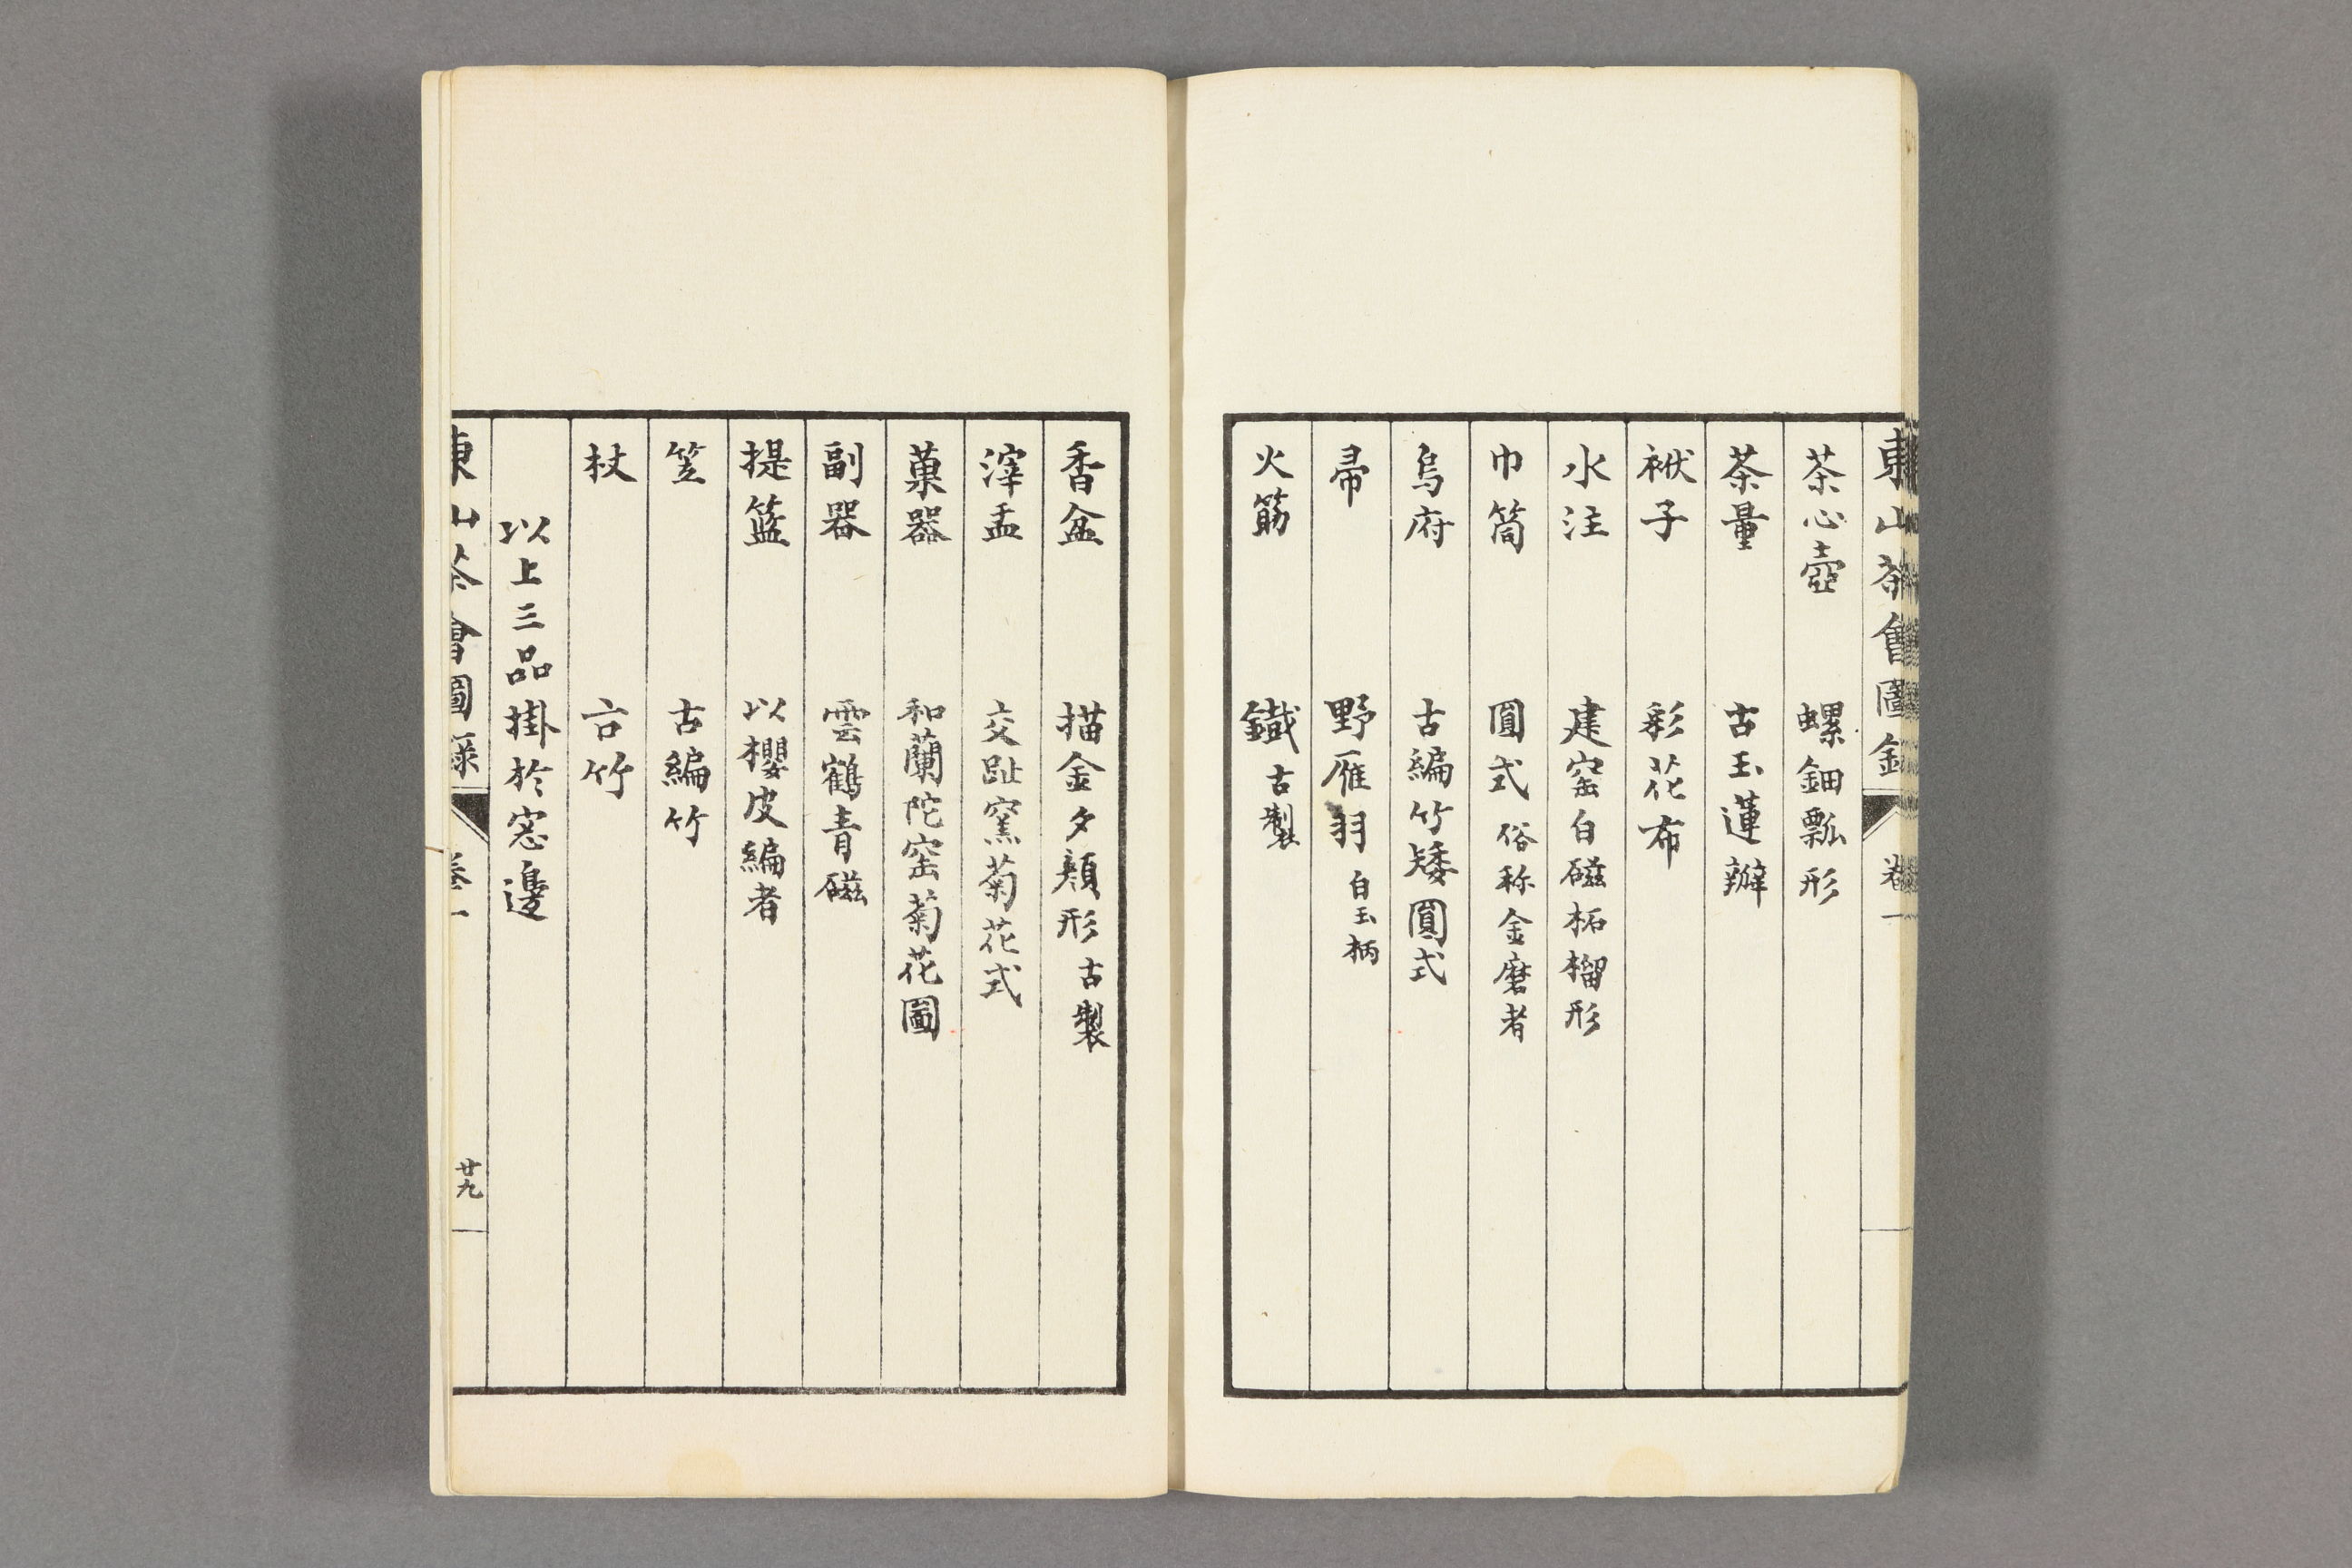 東山茶會圖錄 卷一
茶心壺 螺鈿瓢形
茶量 古玉蓮瓣
袱子 彩花布
水注 建窑白磁柘榴形
巾筒 圓式 俗称金磨者
烏府 古編竹矮圓式
帚 野雁羽 白玉柄
火筯 鐵 古製
香盆 描金夕顏形 古製
滓盂 交趾窯菊花式
菓器 和蘭陀窑菊花圖
副器 雲鶴青磁
提籃 以櫻皮編者
笠 古編竹
杖 方竹
以上三品掛於窓邊
東山茶會圖錄 卷一 廿九